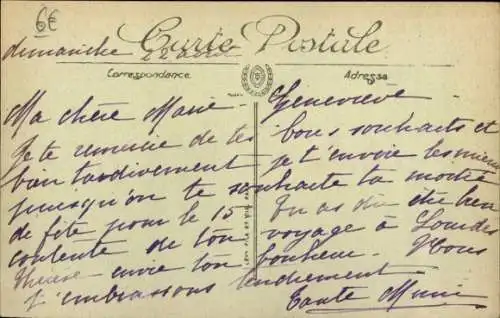 6€
dimanche 22 août
Carte Postale
Correspondance
Adresse
Ma chère Marie
Je te remercie de tes
bien tardivement
puisqu'on te souhaite ta
de fête pour le 15
contente de ton
Thérèse envie ton
t'embrassons tendrement
Geneviève
bons souhaits et
je t'envoie les miens
Tu as dû être bien
voyage à Lourdes
bonheur. Nous
Tante Marie